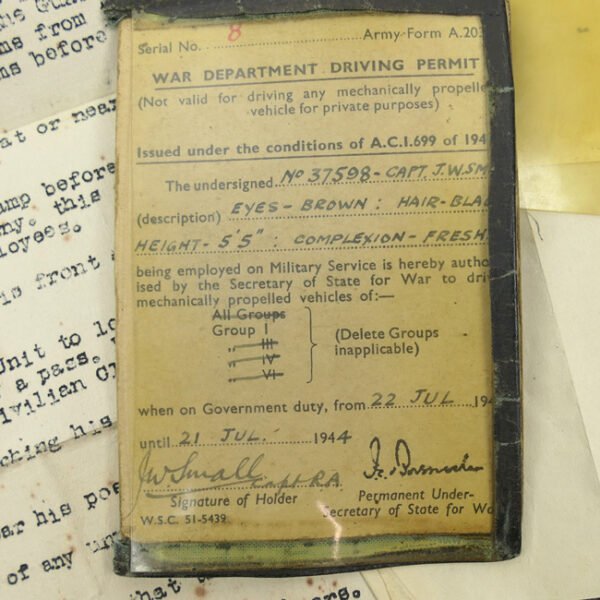 Serial No. 8 Army Form A.203
WAR DEPARTMENT DRIVING PERMIT
(Not valid for driving any mechanically propelle
vehicle for private purposes)
Issued under the conditions of A.C.I.699 of 194
The undersigned No 37598 - CAPT. J.W.SM
(description) EYES - BROWN : HAIR - BLA
HEIGHT - 5'5" : COMPLEXION - FRESH
being employed on Military Service is hereby autho
ised by the Secretary of State for War to dri
mechanically propelled vehicles of:—
All Groups
Group I
„ III
„ IV
„ VI
(Delete Groups
inapplicable)
when on Government duty, from 22 JUL 194
until 21 JUL. 1944
JW Small Capt RA
Signature of Holder
Permanent Under-
Secretary of State for Wa
W.S.C. 51-5439
ms from
ns before
nt or near
amp before
ny. this
loyees.
is front
Unit to lo
a pass.
ivilian
ching his
ar his pos
of any
that